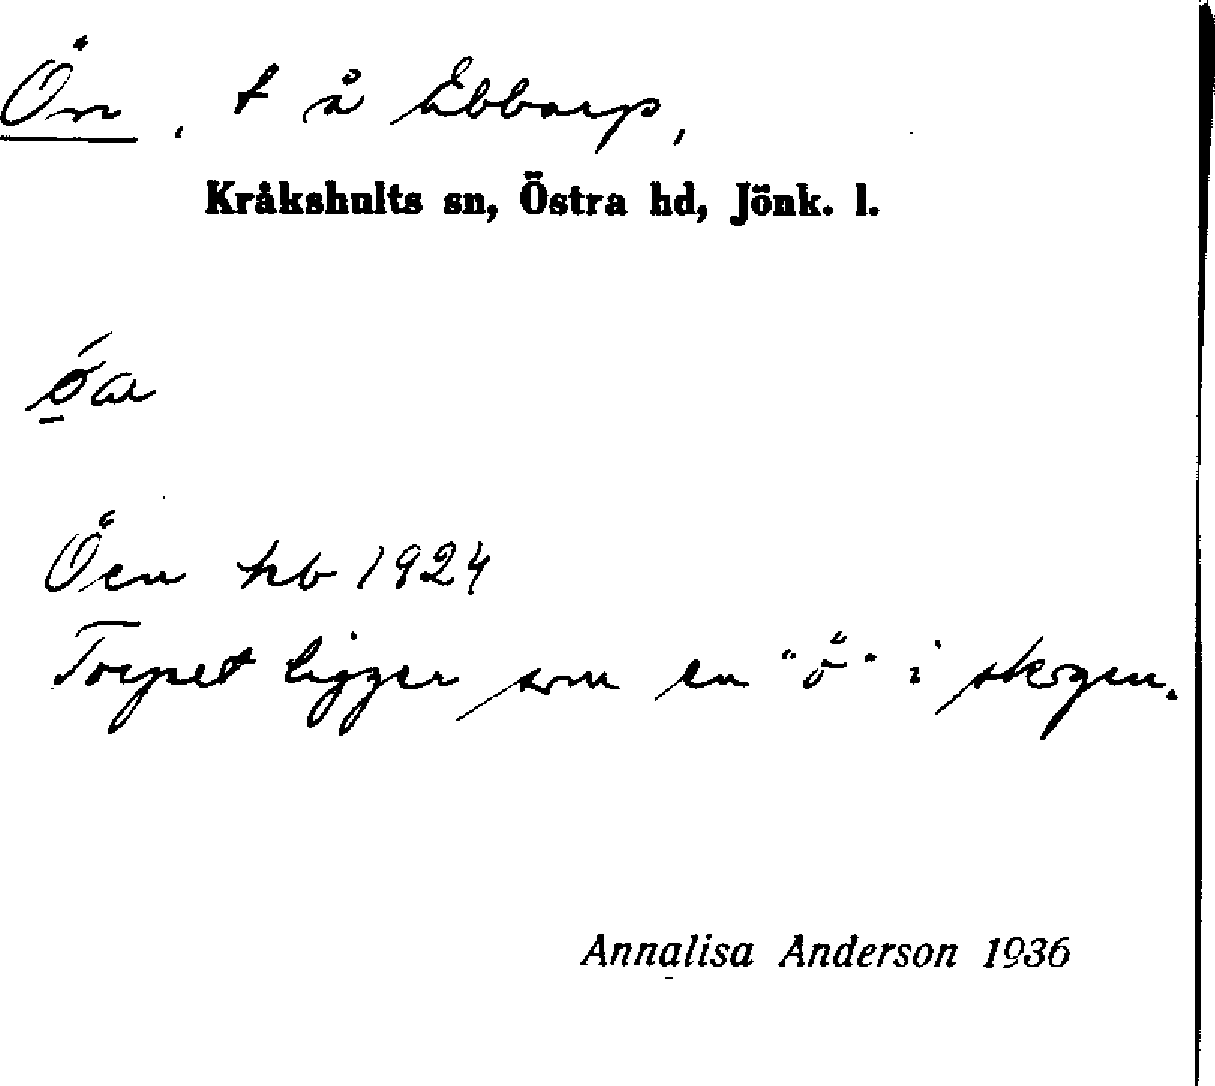 Ön, t å Ebbarp,
Kråkshults sn, Östra hd, Jönk. l.
Öen hb 1924
Torpet ligger som en "ö" i skogen.
Annalisa Anderson 1936